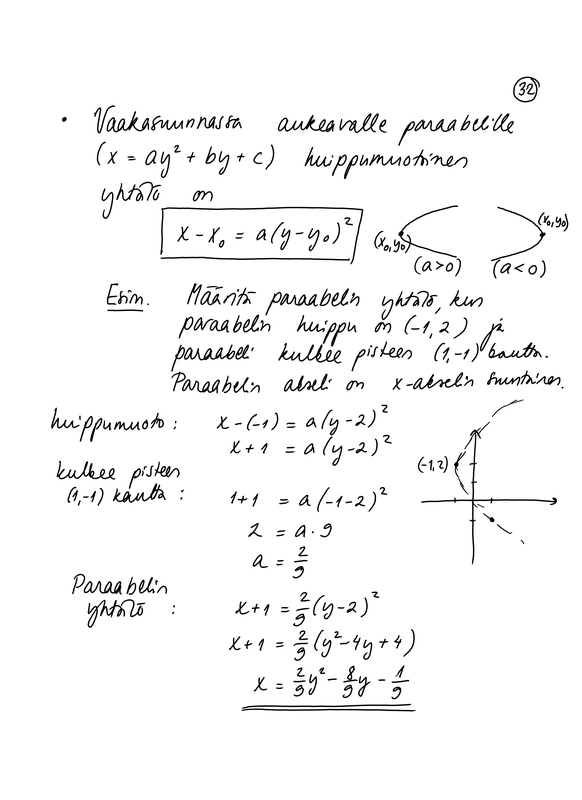 32
• Vaakasuunnassa aukeavalle paraabelille
(x = ay² + by + c) huippumuotoinen
yhtälö on
x - x₀ = a(y-y₀)²
(x₀,y₀)
(x₀,y₀)
(a>0) (a<0)
Esim. Määritä paraabelin yhtälö, kun
paraabelin huippu on (-1,2) ja
paraabeli kulkee pisteen (1,-1) kautta.
Paraabelin akseli on x-akselin suuntainen.
huippumuoto: x-(-1) = a(y-2)²
x+1 = a(y-2)²
(-1,2)
kulkee pisteen
(1,-1) kautta: 1+1 = a(-1-2)²
2 = a·9
a = 2/9
Paraabelin
yhtälö: x+1 = 2/9(y-2)²
x+1 = 2/9(y²-4y+4)
x = 2/9y² - 8/9y - 1/9